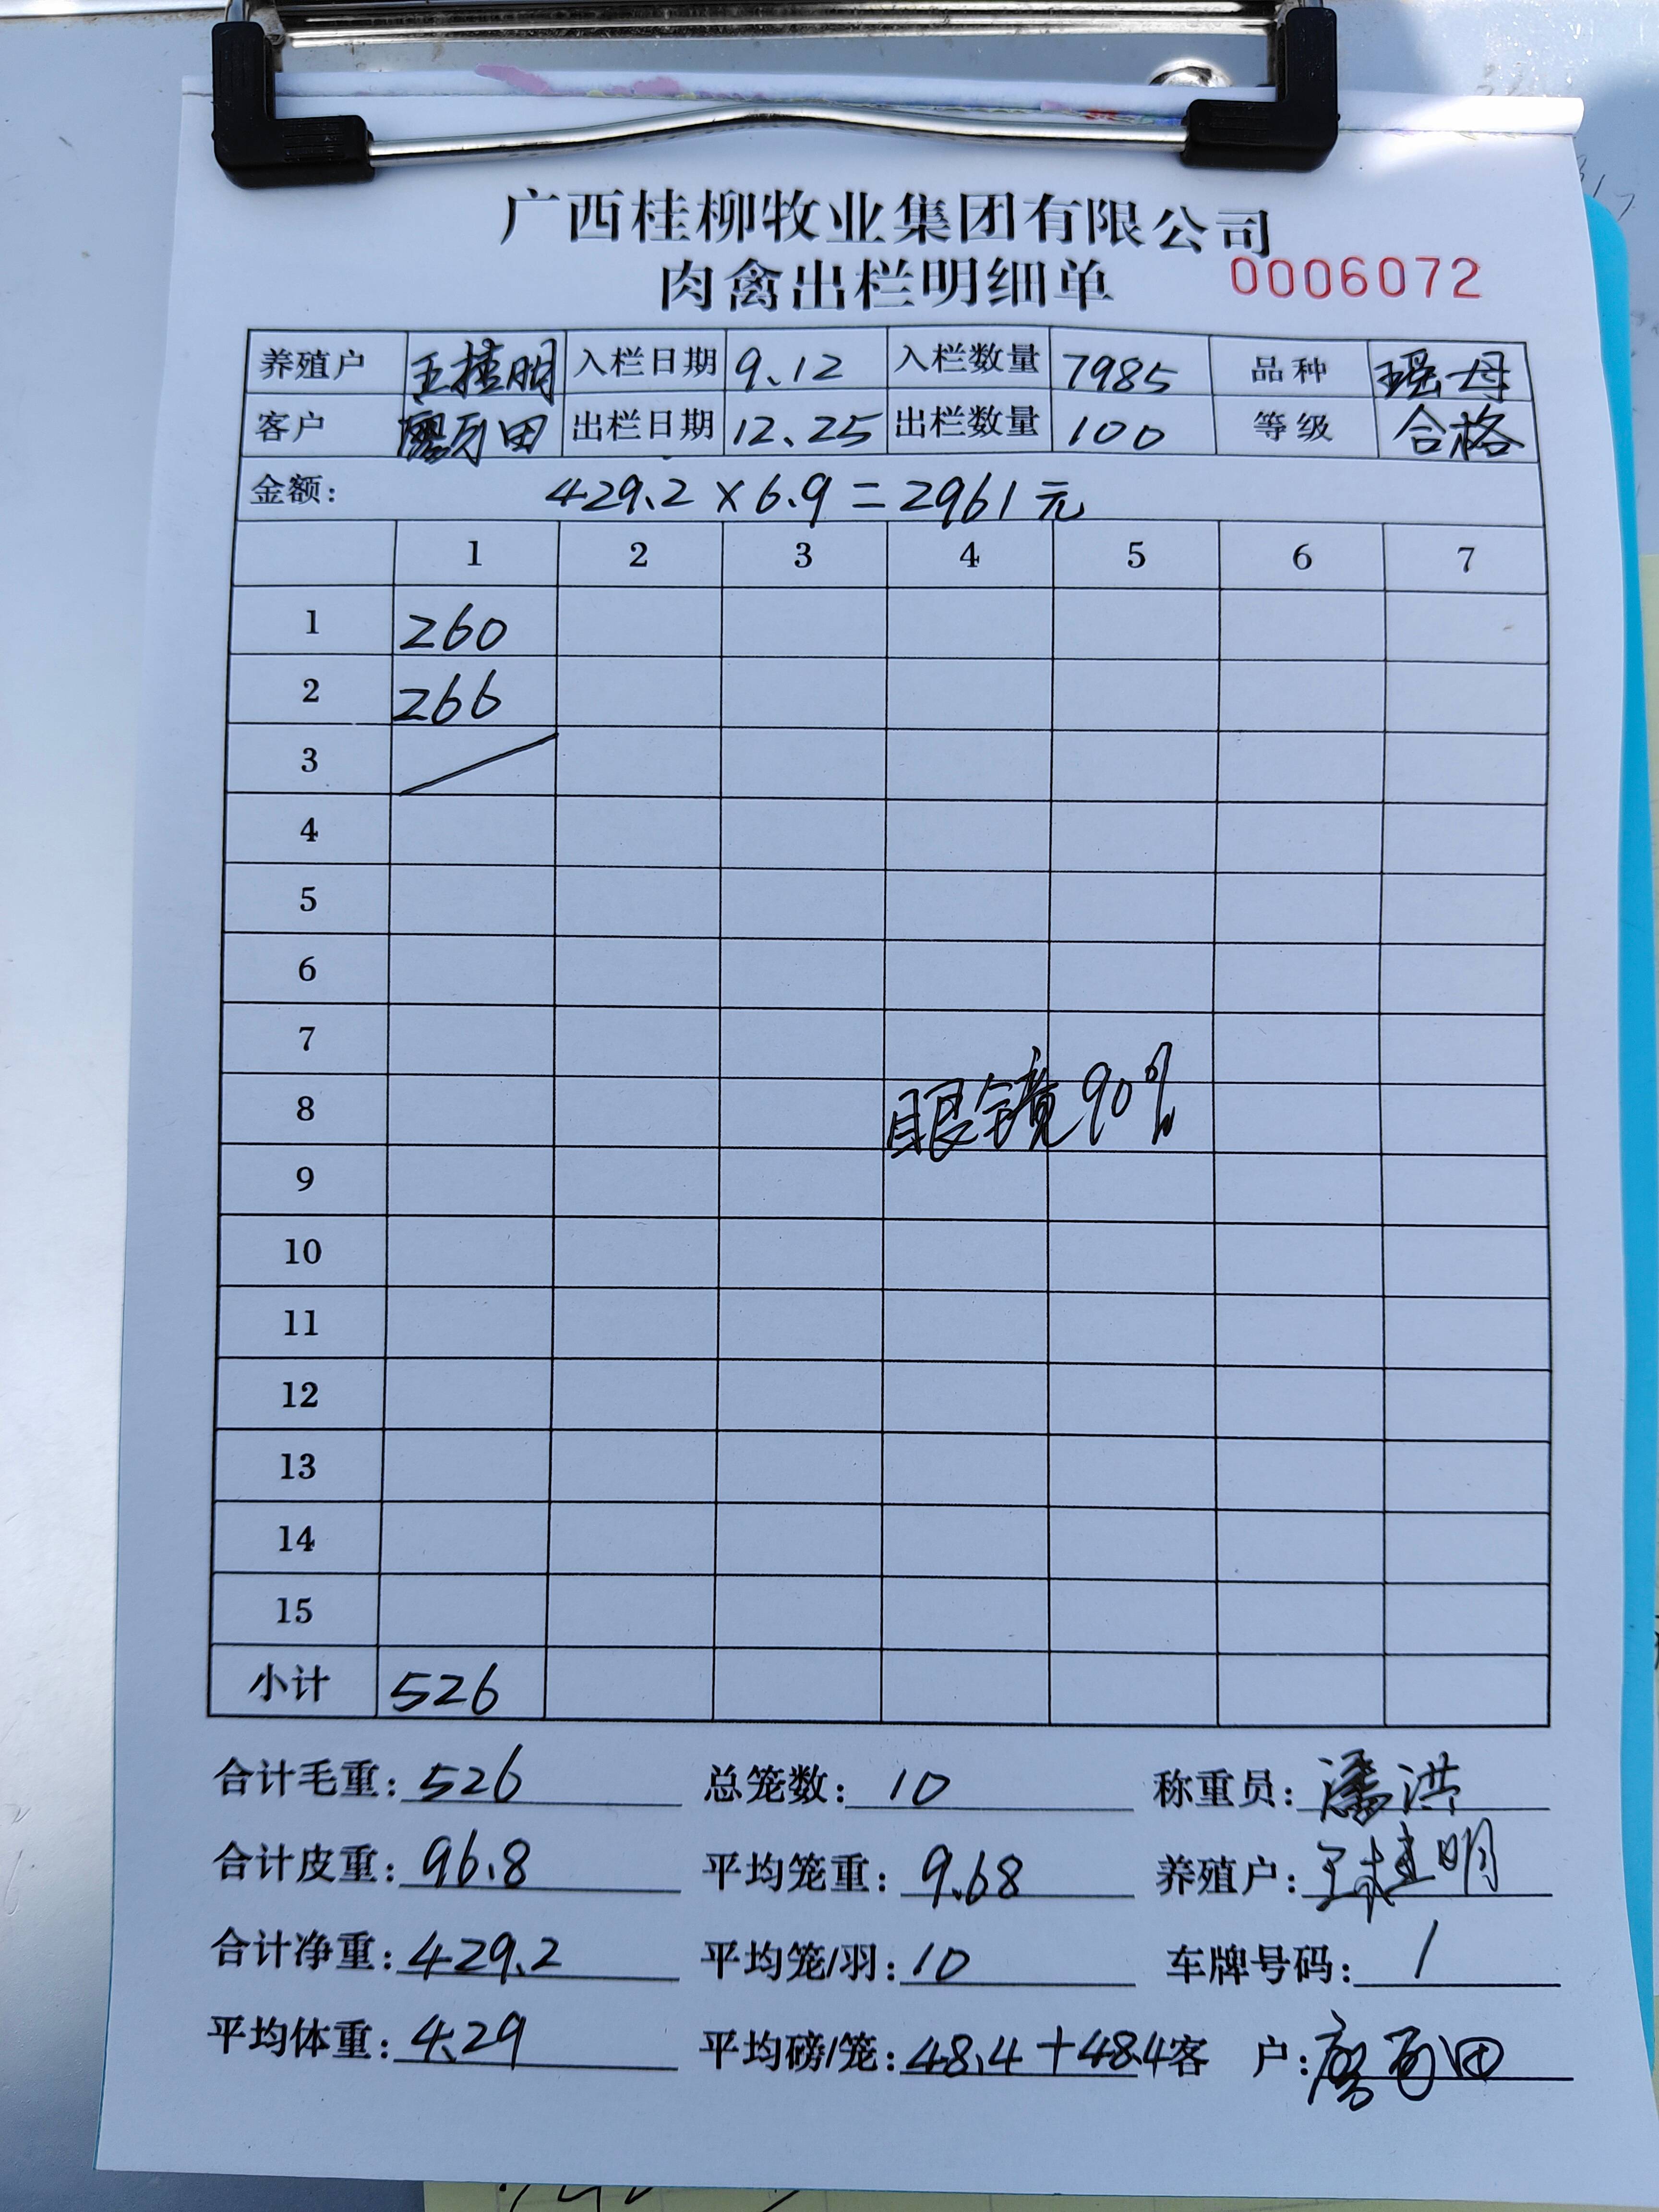 广西桂柳牧业集团有限公司
肉禽出栏明细单 0006072
养殖户 王桂明 入栏日期 9.12 入栏数量 7985 品种 瑶母
客户 廖 田 出栏日期 12.25 出栏数量 100 等级 合格
金额: 429.2×6.9=2961元
1 2 3 4 5 6 7
1 260
2 266
3
4
5
6
7
8 眼镜90%
9
10
11
12
13
14
15
小计 526
合计毛重: 526 总笼数: 10 称重员: 潘洪
合计皮重: 96.8 平均笼重: 9.68 养殖户: 王桂明
合计净重: 429.2 平均笼/羽: 10 车牌号码: 1
平均体重: 4.29 平均磅/笼: 48.4+48.4 客户: 廖 田